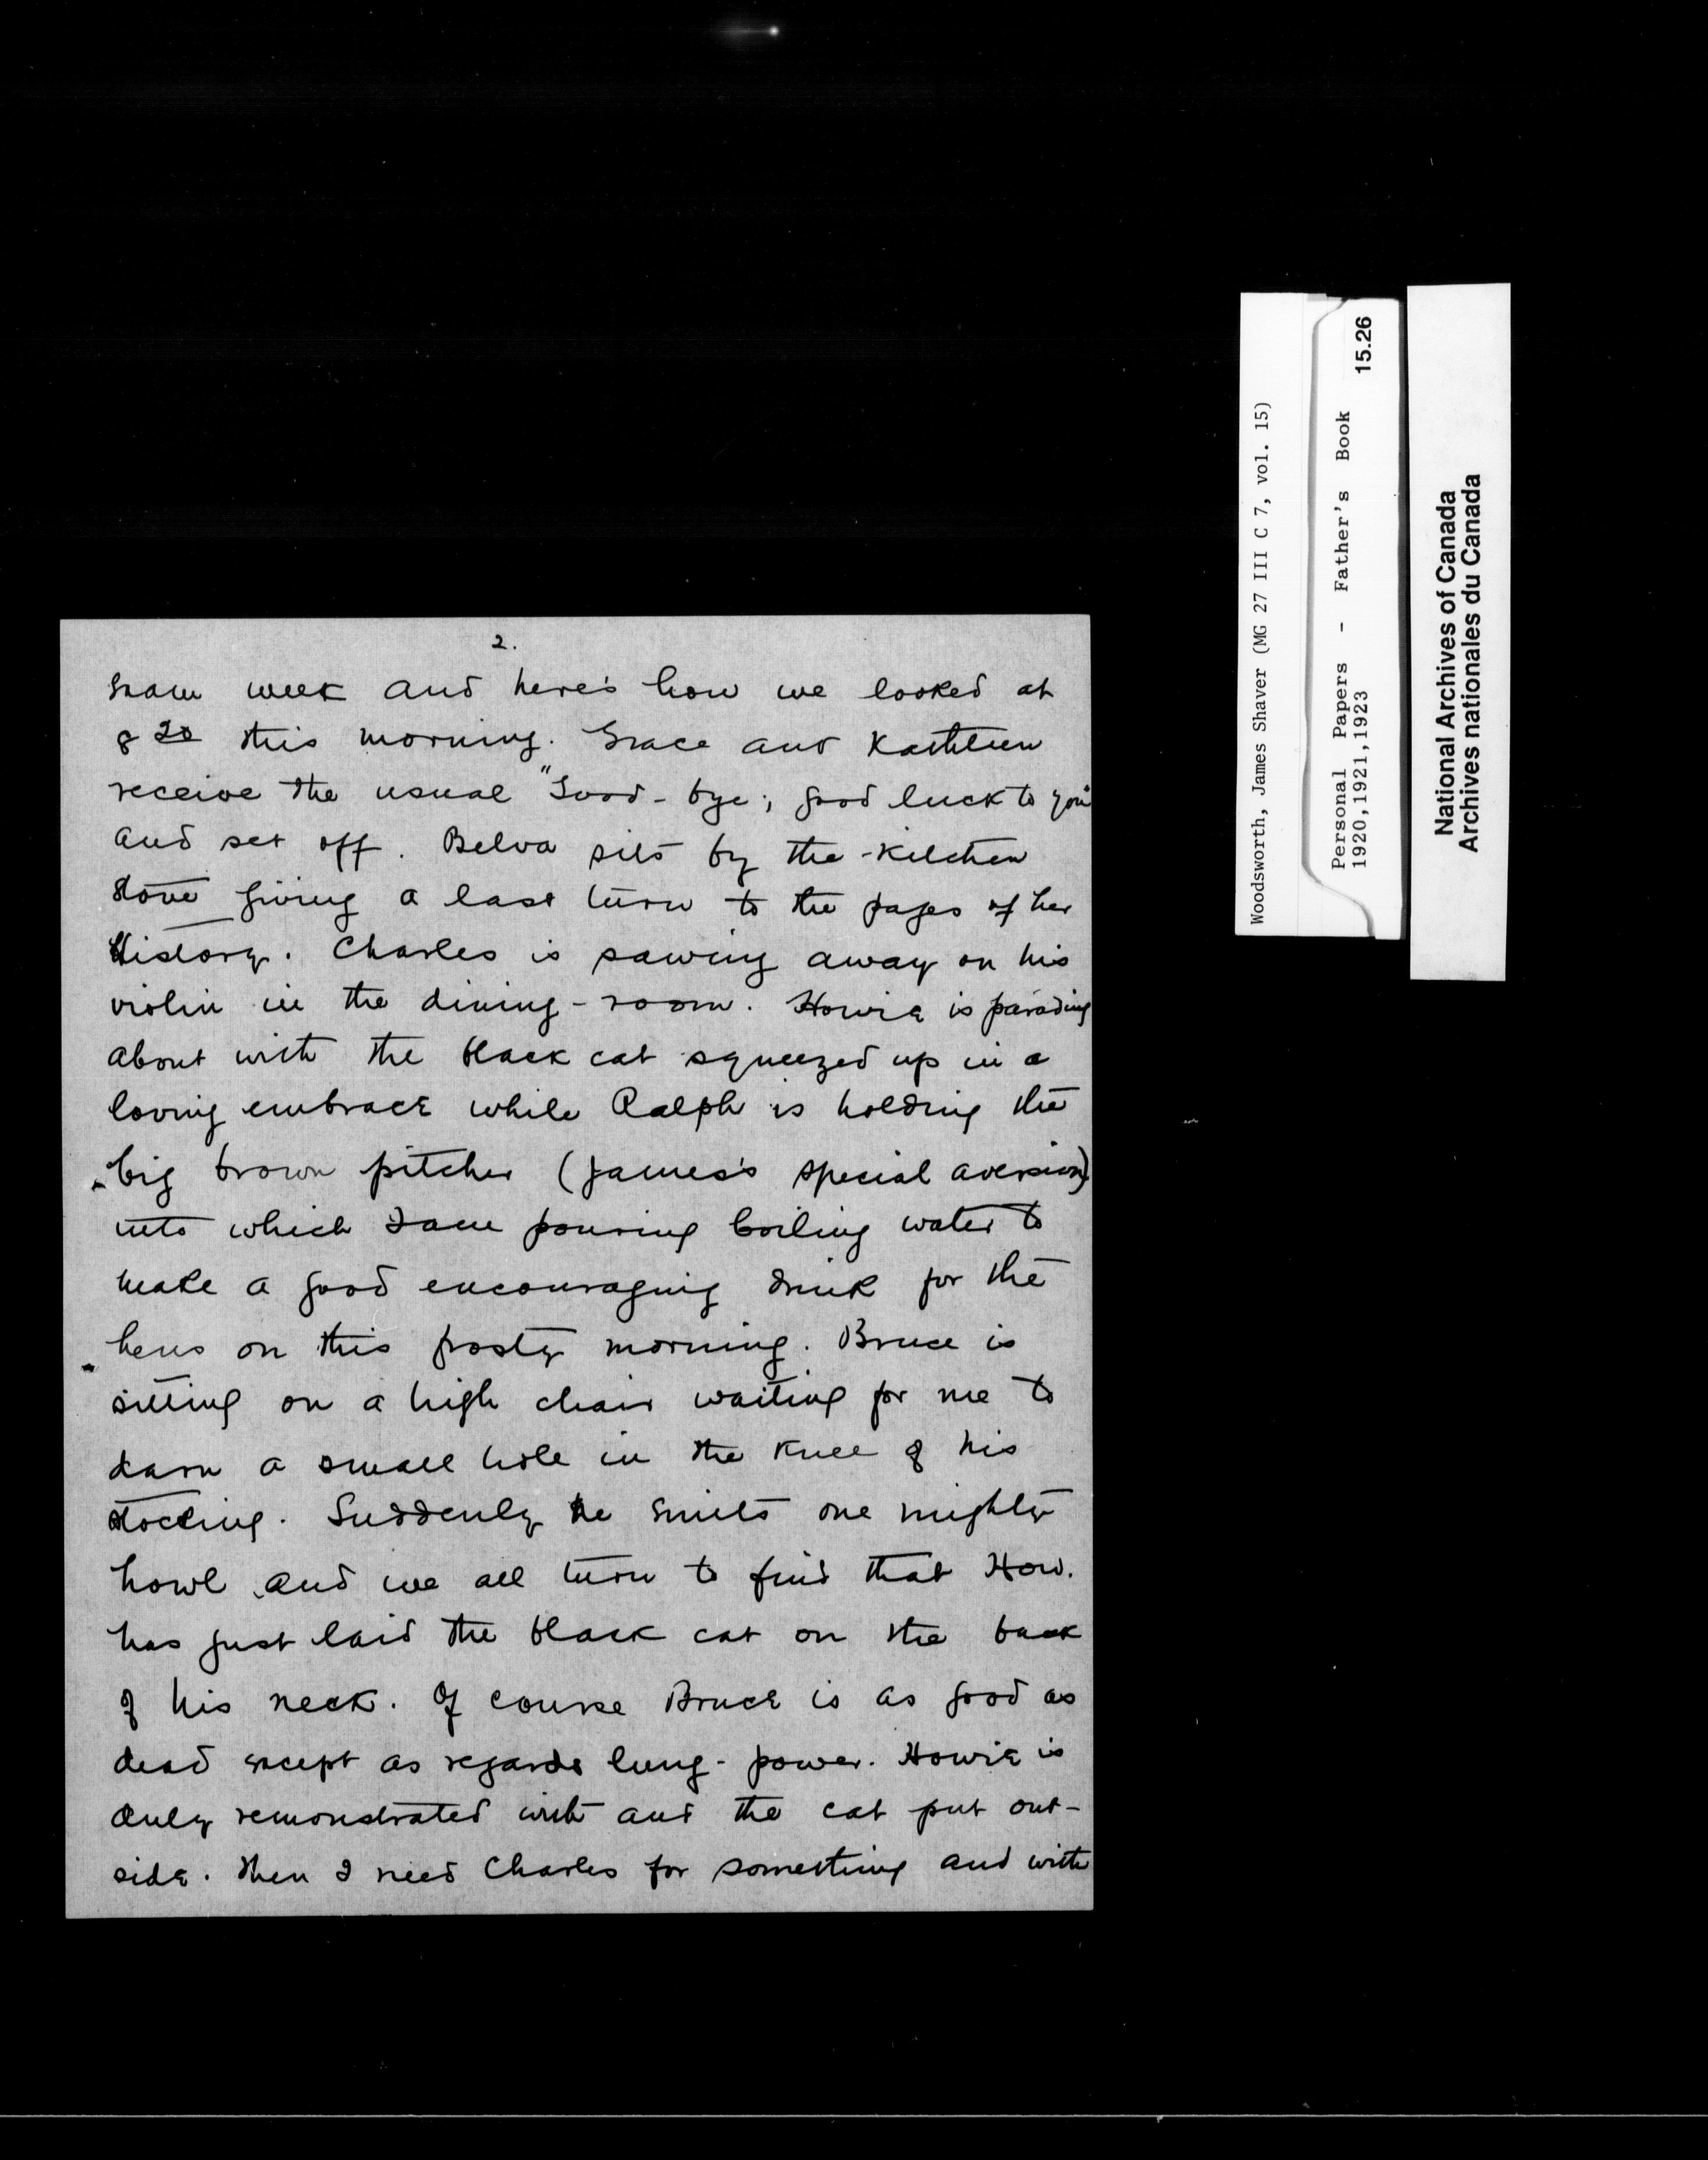 2.
exam week and here's how we looked at
8 20 this morning. Grace and Kathleen
receive the usual "Good-bye; good luck to you"
and set off. Belva sits by the kitchen
stove giving a last turn to the pages of her
History. Charles is sawing away on his
violin in the dining-room. Howie is parading
about with the black cat squeezed up in a
loving embrace while Ralph is holding the
big brown pitcher (James's special aversion)
into which I am pouring boiling water to
make a good encouraging drink for the
hens on this frosty morning. Bruce is
sitting on a high chair waiting for me to
darn a small hole in the knee of his
stocking. Suddenly he emits one mighty
howl and we all turn to find that How.
has just laid the black cat on the back
of his neck. Of course Bruce is as good as
dead except as regards lung-power. Howie is
duly remonstrated with and the cat put out-
side. Then I need Charles for something and with
Woodsworth, James Shaver (MG 27 III C 7, vol. 15)
Personal Papers - Father's Book 15.26
1920,1921,1923
National Archives of Canada
Archives nationales du Canada